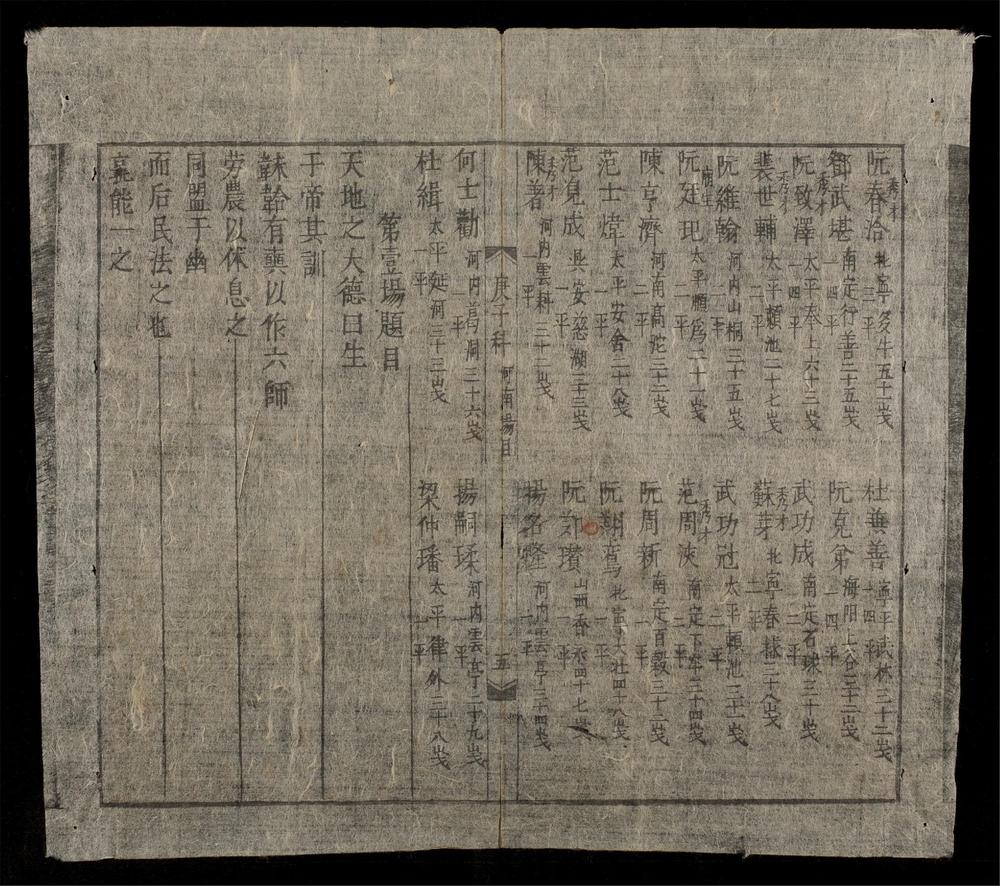 秀才
阮春洽 北寧多牛五十一歲 三平
杜典善 寧平武林三十二歲 一四平
鄧武堪 南定行善二十五歲 一四平
阮克第 海陽上谷二十二歲 一四平
秀才
阮致澤 太平奉上六十三歲 一四平
武功成 南定石球三十歲 二平
秀才
裴世輔 太平頼池二十七歲 二平
秀才
蘇芽 北寧春樣二十八歲 二平
阮維翰 河內山桐三十五歲 二平
武功冠 太平頼池二十二歲 二平
蔭生
阮廷玘 太平順為二十一歲 二平
秀才
范周浹 南定下 三十四歲 二平
陳亨濟 河南高陀二十二歲 二平
阮周新 南定百穀三十二歲 一平
范士煒 太平安舍二十八歲 一平
阮翊 北寧大壯四十八歲 一平
范寬成 興安慈湖二十三歲 一平
阮 瓚 山西香 四十七歲 一平
秀才
陳善 河內雲耕三十二歲 一平
揚名 河內雲亭三十四歲 二平
庚子科 河南場目 五
何士勸 河內葛洞三十六歲 一平
揚嗣瑈 河內雲亭二十九歲 一平
杜緝 太平延河三十三歲 一平
梁仲璠 太平律外三十八歲 二平
第壹場題目
天地之大德曰生
于帝其訓
韎韐有奭以作六師
勞農以休息之
同盟于幽
而后民法之也
孰能一之